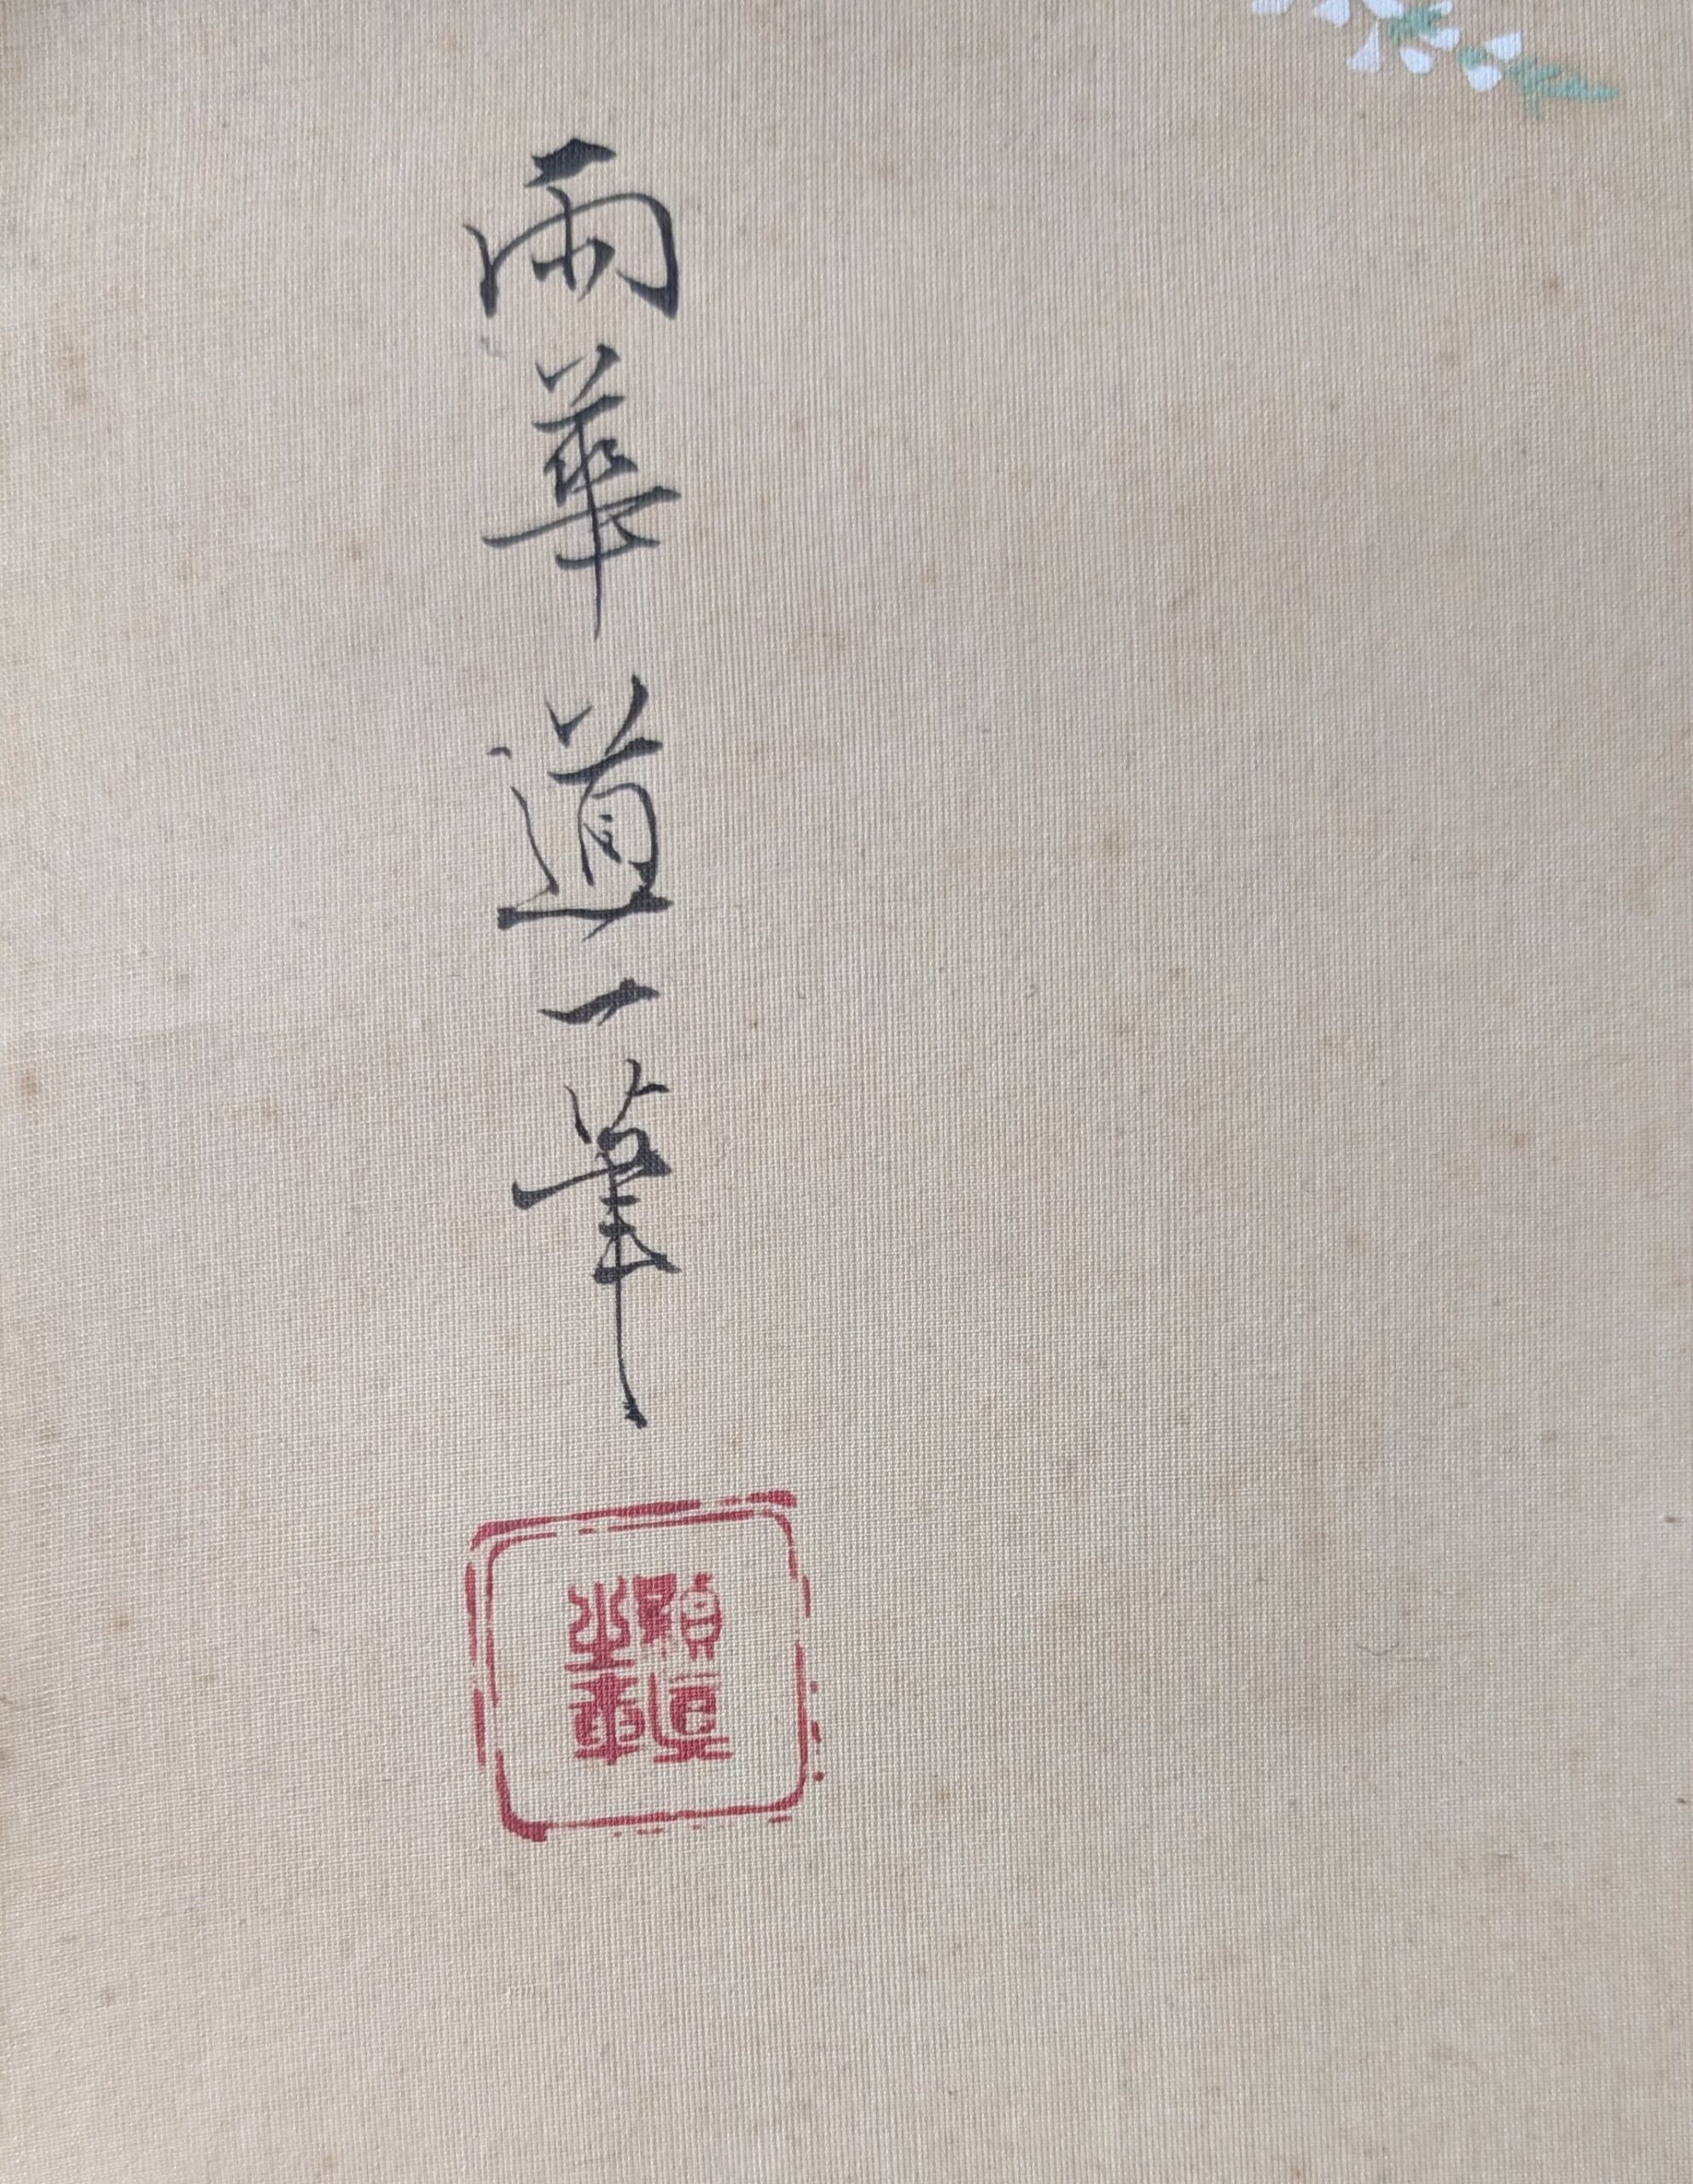 雨華道一筆